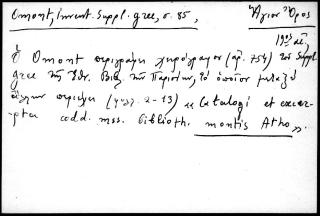 Omont, Invent. Suppl. grec, σ. 85, Ἅγιον Ὄρος
19ος αἰ.
Ὁ Omont περιγράφει χειρόγραφον (ἀρ. 754) τοῦ Suppl.
grec τῆς Ἐθν. Βιβ. τῶν Παρισίων, τὸ ὁποῖον μεταξὺ
ἄλλων περιέχει (φύλλ. 2-13) «Catalogi et excer-
pta codd. mss. biblioth. montis Atho».